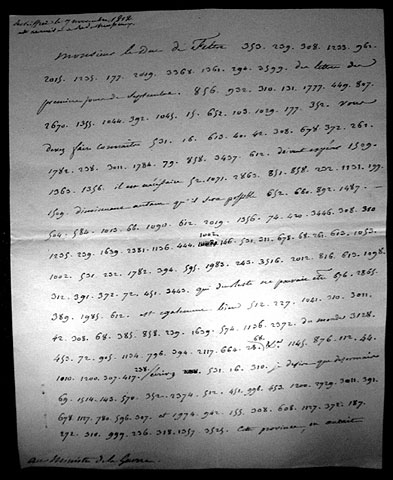 Monsieur le Duc de Feltre 353. 239. 308. 1233. 962.
2015. 1235. 177. 2019. 3368. 1361. 290. 3599. de lettre de
premiers jours de Septembre. 856. 932. 310. 131. 1777. 449. 807.
2670. 1355. 1044. 392. 1045. 15. 652. 103. 1029. 177. 352. Vous
devez faire connaitre 531. 16. 613. 40. 42. 308. 678. 372. 262.
1782. 238. 3011. 1784. 79. 858. 3437. 612. 1529.
1363. 1356. il est nécessaire 52. 1071. 2863. 851. 858. 232. 1233. 199.
1509. autant qu'il sera possible 652. 680. 892. 1487.
504. 584. 1013. 66. 612. 2019. 1356. 74. 420. 3446. 308. 310
1235. 239. 1639. 2381. 1136. 444. 1002. 146. 531. 311. 678. 68. 26. 613. 1053.
1002. 531. 232. 1782. 394. 595. 1983. 243. 3516. 2012. 816. 613. 1098.
312. 391. 372. 72. 451. 3443. qui du reste ne pouvait être 676. 2865.
389. 1985. 612. est également 512. 227. 1041. 310. 3011.
42. 308. 68. 385. 858. 239. 1639. 574. 1136. 2372. du 3128.
453. 72. 905. 1134. 796. 394. 2117. 664. 68. 1145. 876. 112. 44.
1010. 1200. 307. 417. 238. 531. 16. 310. je désire que
69. 1514. 143. 570. 352. 2374. 512. 451. 996. 453. 1200. 2729. 3011. 391.
678. 1127. 780. 596. 307. et 1974. 942. 155. 308. 608. 1127. 372. 187.
272. 310. 999. 236. 318. 1357. 3525. Cette province, en
Au Ministre de la Guerre